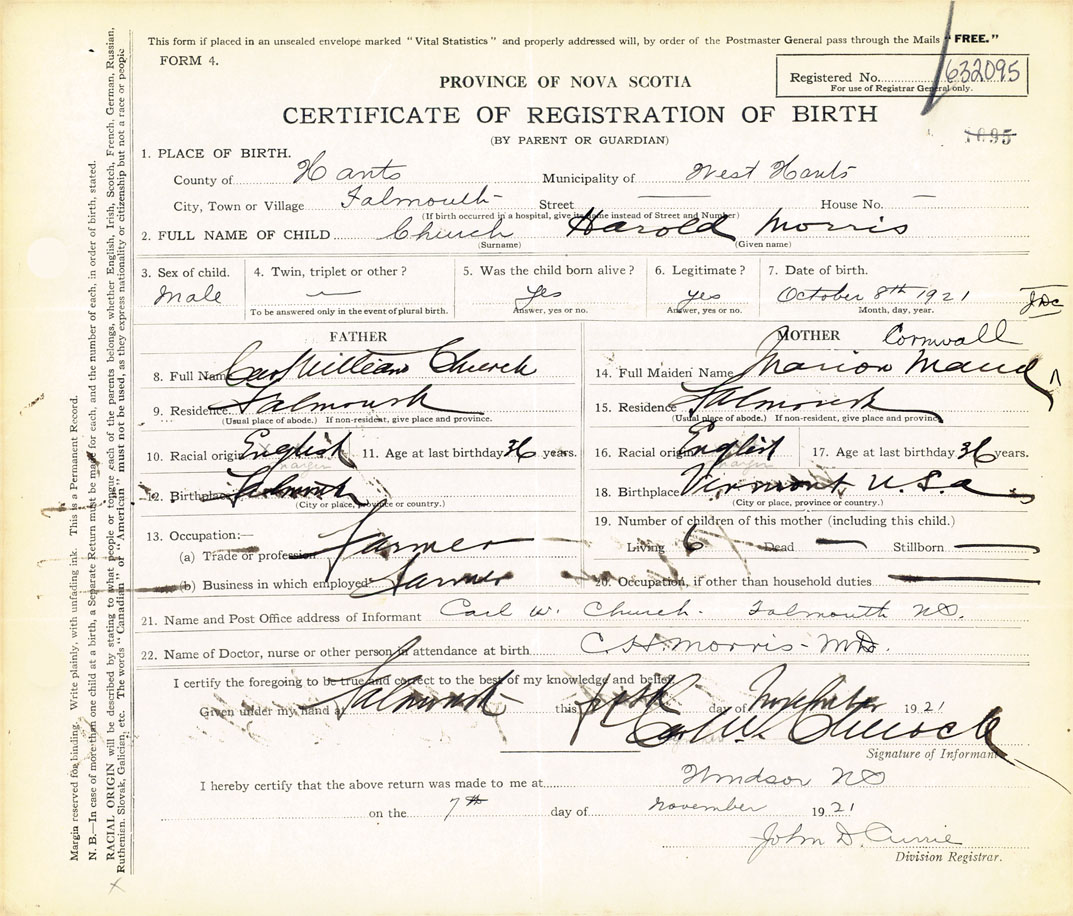 This form if placed in an unsealed envelope marked "Vital Statistics" and properly addressed will, by order of the Postmaster General pass through the Mails "FREE."
FORM 4.
PROVINCE OF NOVA SCOTIA
Registered No. 632095
For use of Registrar General only.
CERTIFICATE OF REGISTRATION OF BIRTH
(BY PARENT OR GUARDIAN)
1095
1. PLACE OF BIRTH.
County of Hants Municipality of West Hants
City, Town or Village Falmouth Street — House No. —
(If birth occurred in a hospital, give its name instead of Street and Number)
2. FULL NAME OF CHILD Church Harold Morris
(Surname) (Given name)
3. Sex of child. 4. Twin, triplet or other? 5. Was the child born alive? 6. Legitimate? 7. Date of birth.
Male — Yes yes October 8th 1921 JDC
To be answered only in the event of plural birth. Answer, yes or no. Answer, yes or no. Month, day, year.
FATHER
8. Full Name Carl William Church
9. Residence Falmouth
(Usual place of abode.) If non-resident, give place and province.
10. Racial origin English 11. Age at last birthday 36 years.
margin
12. Birthplace Falmouth
(City or place, province or country.)
13. Occupation:—
(a) Trade or profession Farmer
(b) Business in which employed Farmer
MOTHER Cornwall
14. Full Maiden Name Marion Maud ^
15. Residence Falmouth
(Usual place of abode.) If non-resident, give place and province
16. Racial origin English 17. Age at last birthday 36 years.
margin
18. Birthplace Vermont U.S.a
(City or place, province or country.)
19. Number of children of this mother (including this child.)
Living 6 Dead — Stillborn —
20. Occupation, if other than household duties —
21. Name and Post Office address of Informant Carl W. Church. Falmouth NS.
22. Name of Doctor, nurse or other person in attendance at birth C. H. Morris - MD.
I certify the foregoing to be true and correct to the best of my knowledge and belief.
Given under my hand at Falmouth this day of November 1921
Carl W. Church
Signature of Informant.
I hereby certify that the above return was made to me at Windsor NS
on the 7th day of November 1921
John D. Currie
Division Registrar.
Margin reserved for binding. Write plainly, with unfading ink. This is a Permanent Record.
N. B.—In case of more than one child at a birth, a Separate Return must be made for each, and the number of each, in order of birth, stated.
RACIAL ORIGIN will be described by stating to what people or tongue each of the parents belongs, whether English, Irish, Scotch, French, German, Russian,
Ruthenian, Slovak, Galician, etc. The words "Canadian" or "American" must not be used, as they express nationality or citizenship but not a race or people